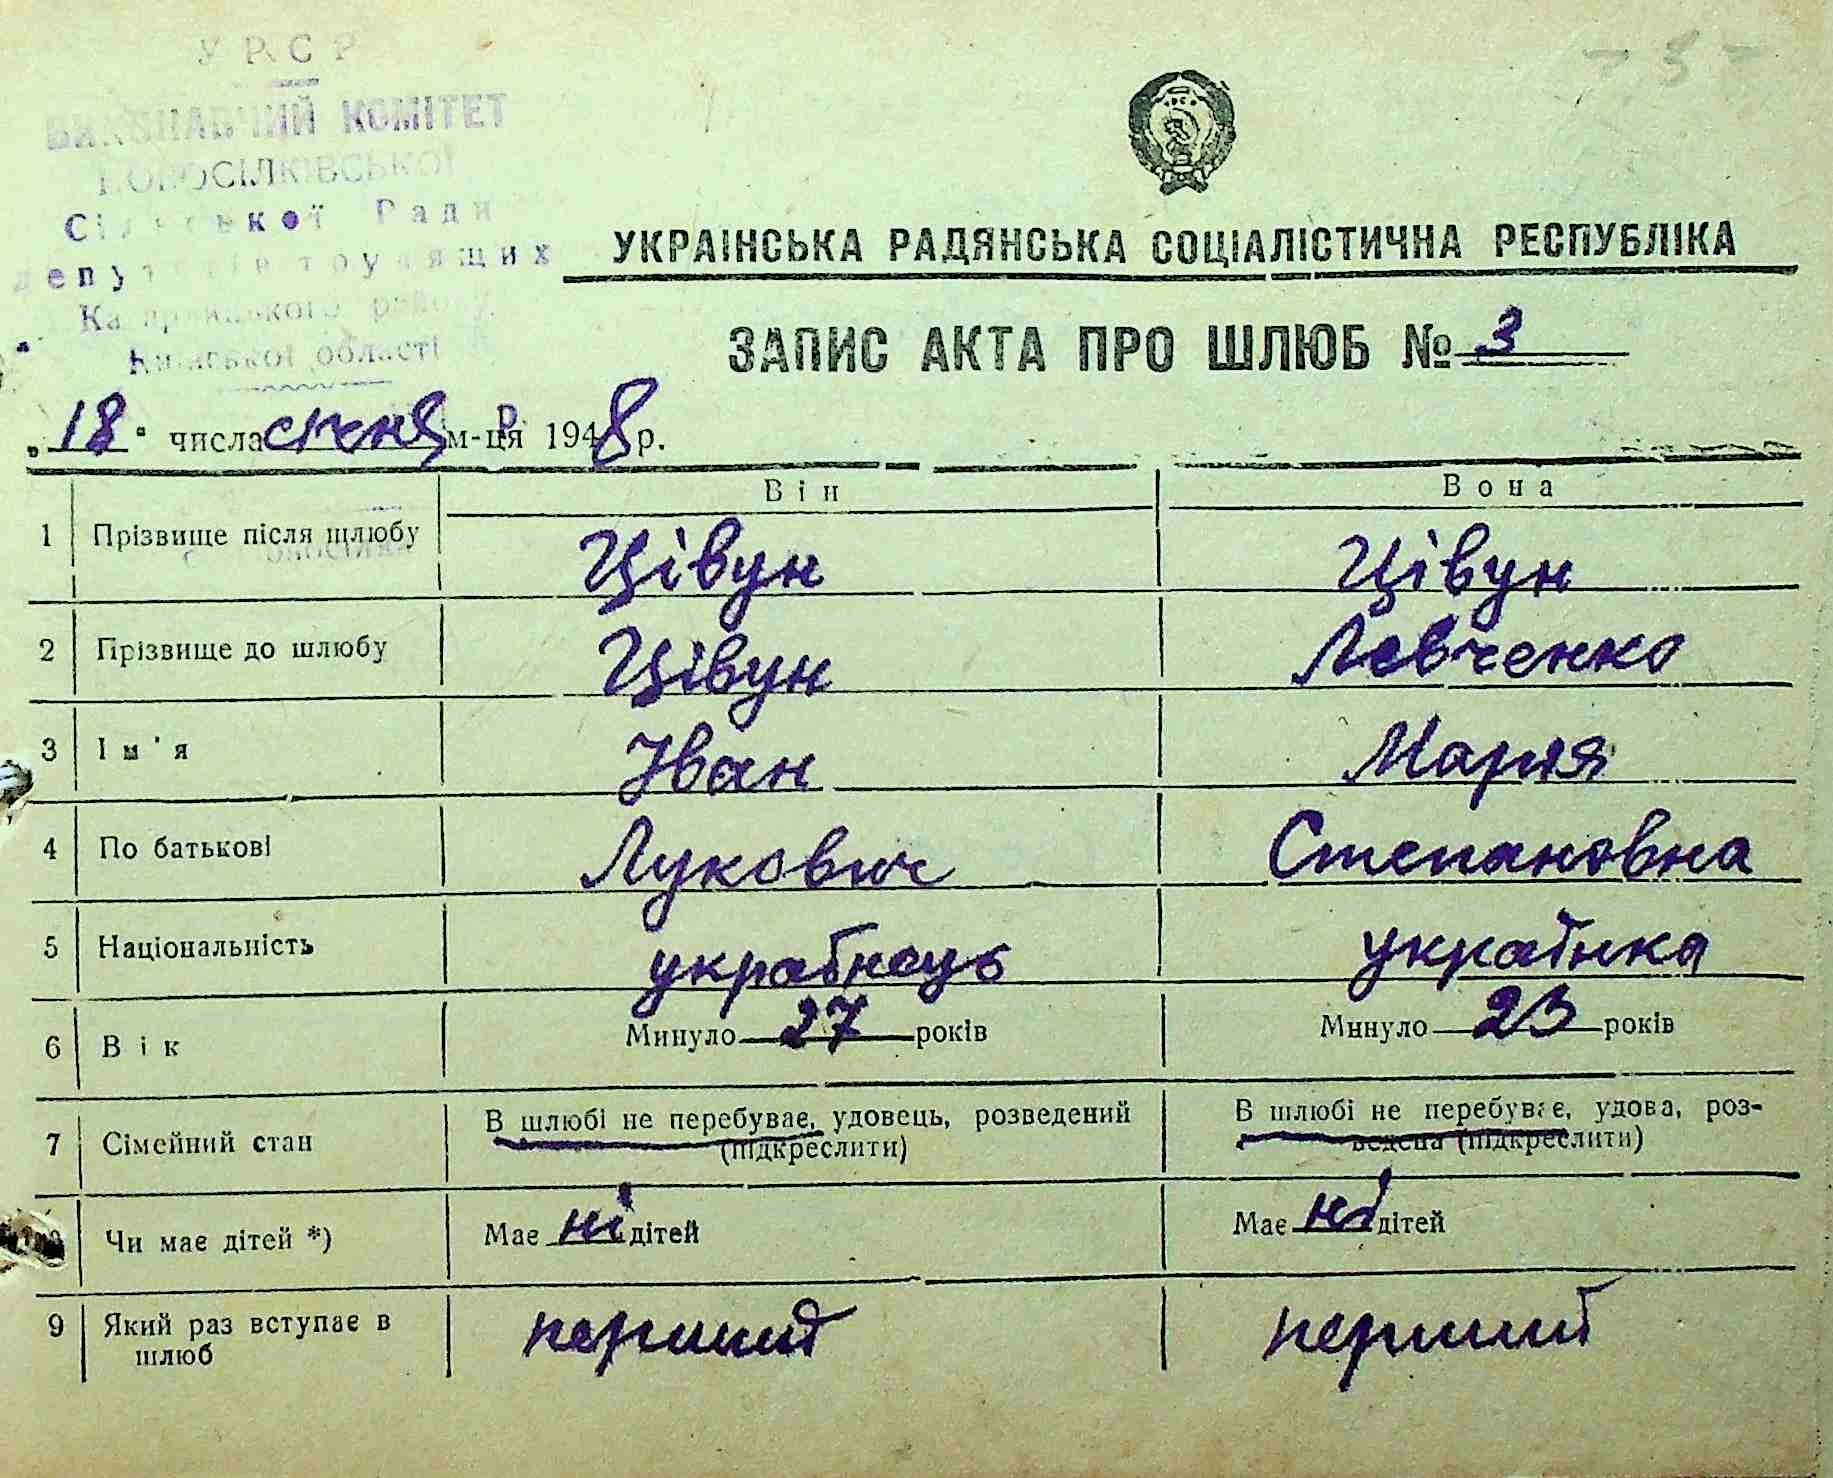 УРСР
ВИКОНАВЧИЙ КОМІТЕТ
НОВОСІЛКІВСЬКОЇ
Сільської Ради
депутатів трудящих
району
Київської області
- 5 -
УКРАІНСЬКА РАДЯНСЬКА СОЦІАЛІСТИЧНА РЕСПУБЛІКА
ЗАПИС АКТА ПРО ШЛЮБ № 3
„18" числа січня м-ця 1948 р.
Він Вона
1 Прізвище після шлюбу Цівун Цівун
2 Прізвище до шлюбу Цівун Левченко
3 Ім'я Іван Марія
4 По батькові Лукович Степановна
5 Національність українець українка
6 Вік Минуло 27 років Минуло 23 років
7 Сімейний стан В шлюбі не перебуває, удовець, розведений В шлюбі не перебуває, удова, роз-
(підкреслити) ведена (підкреслити)
Чи має дітей *) Має ні дітей Має ні дітей
9 Який раз вступає в перший перший
шлюб